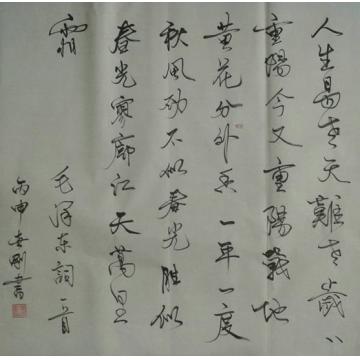 人生易老天難老歲〻
重陽今又重陽戰地
黄花分外香一年一度
秋風勁不似春光勝似
春光寥廓江天萬里
霜
毛泽东詞一首
丙申 剛書